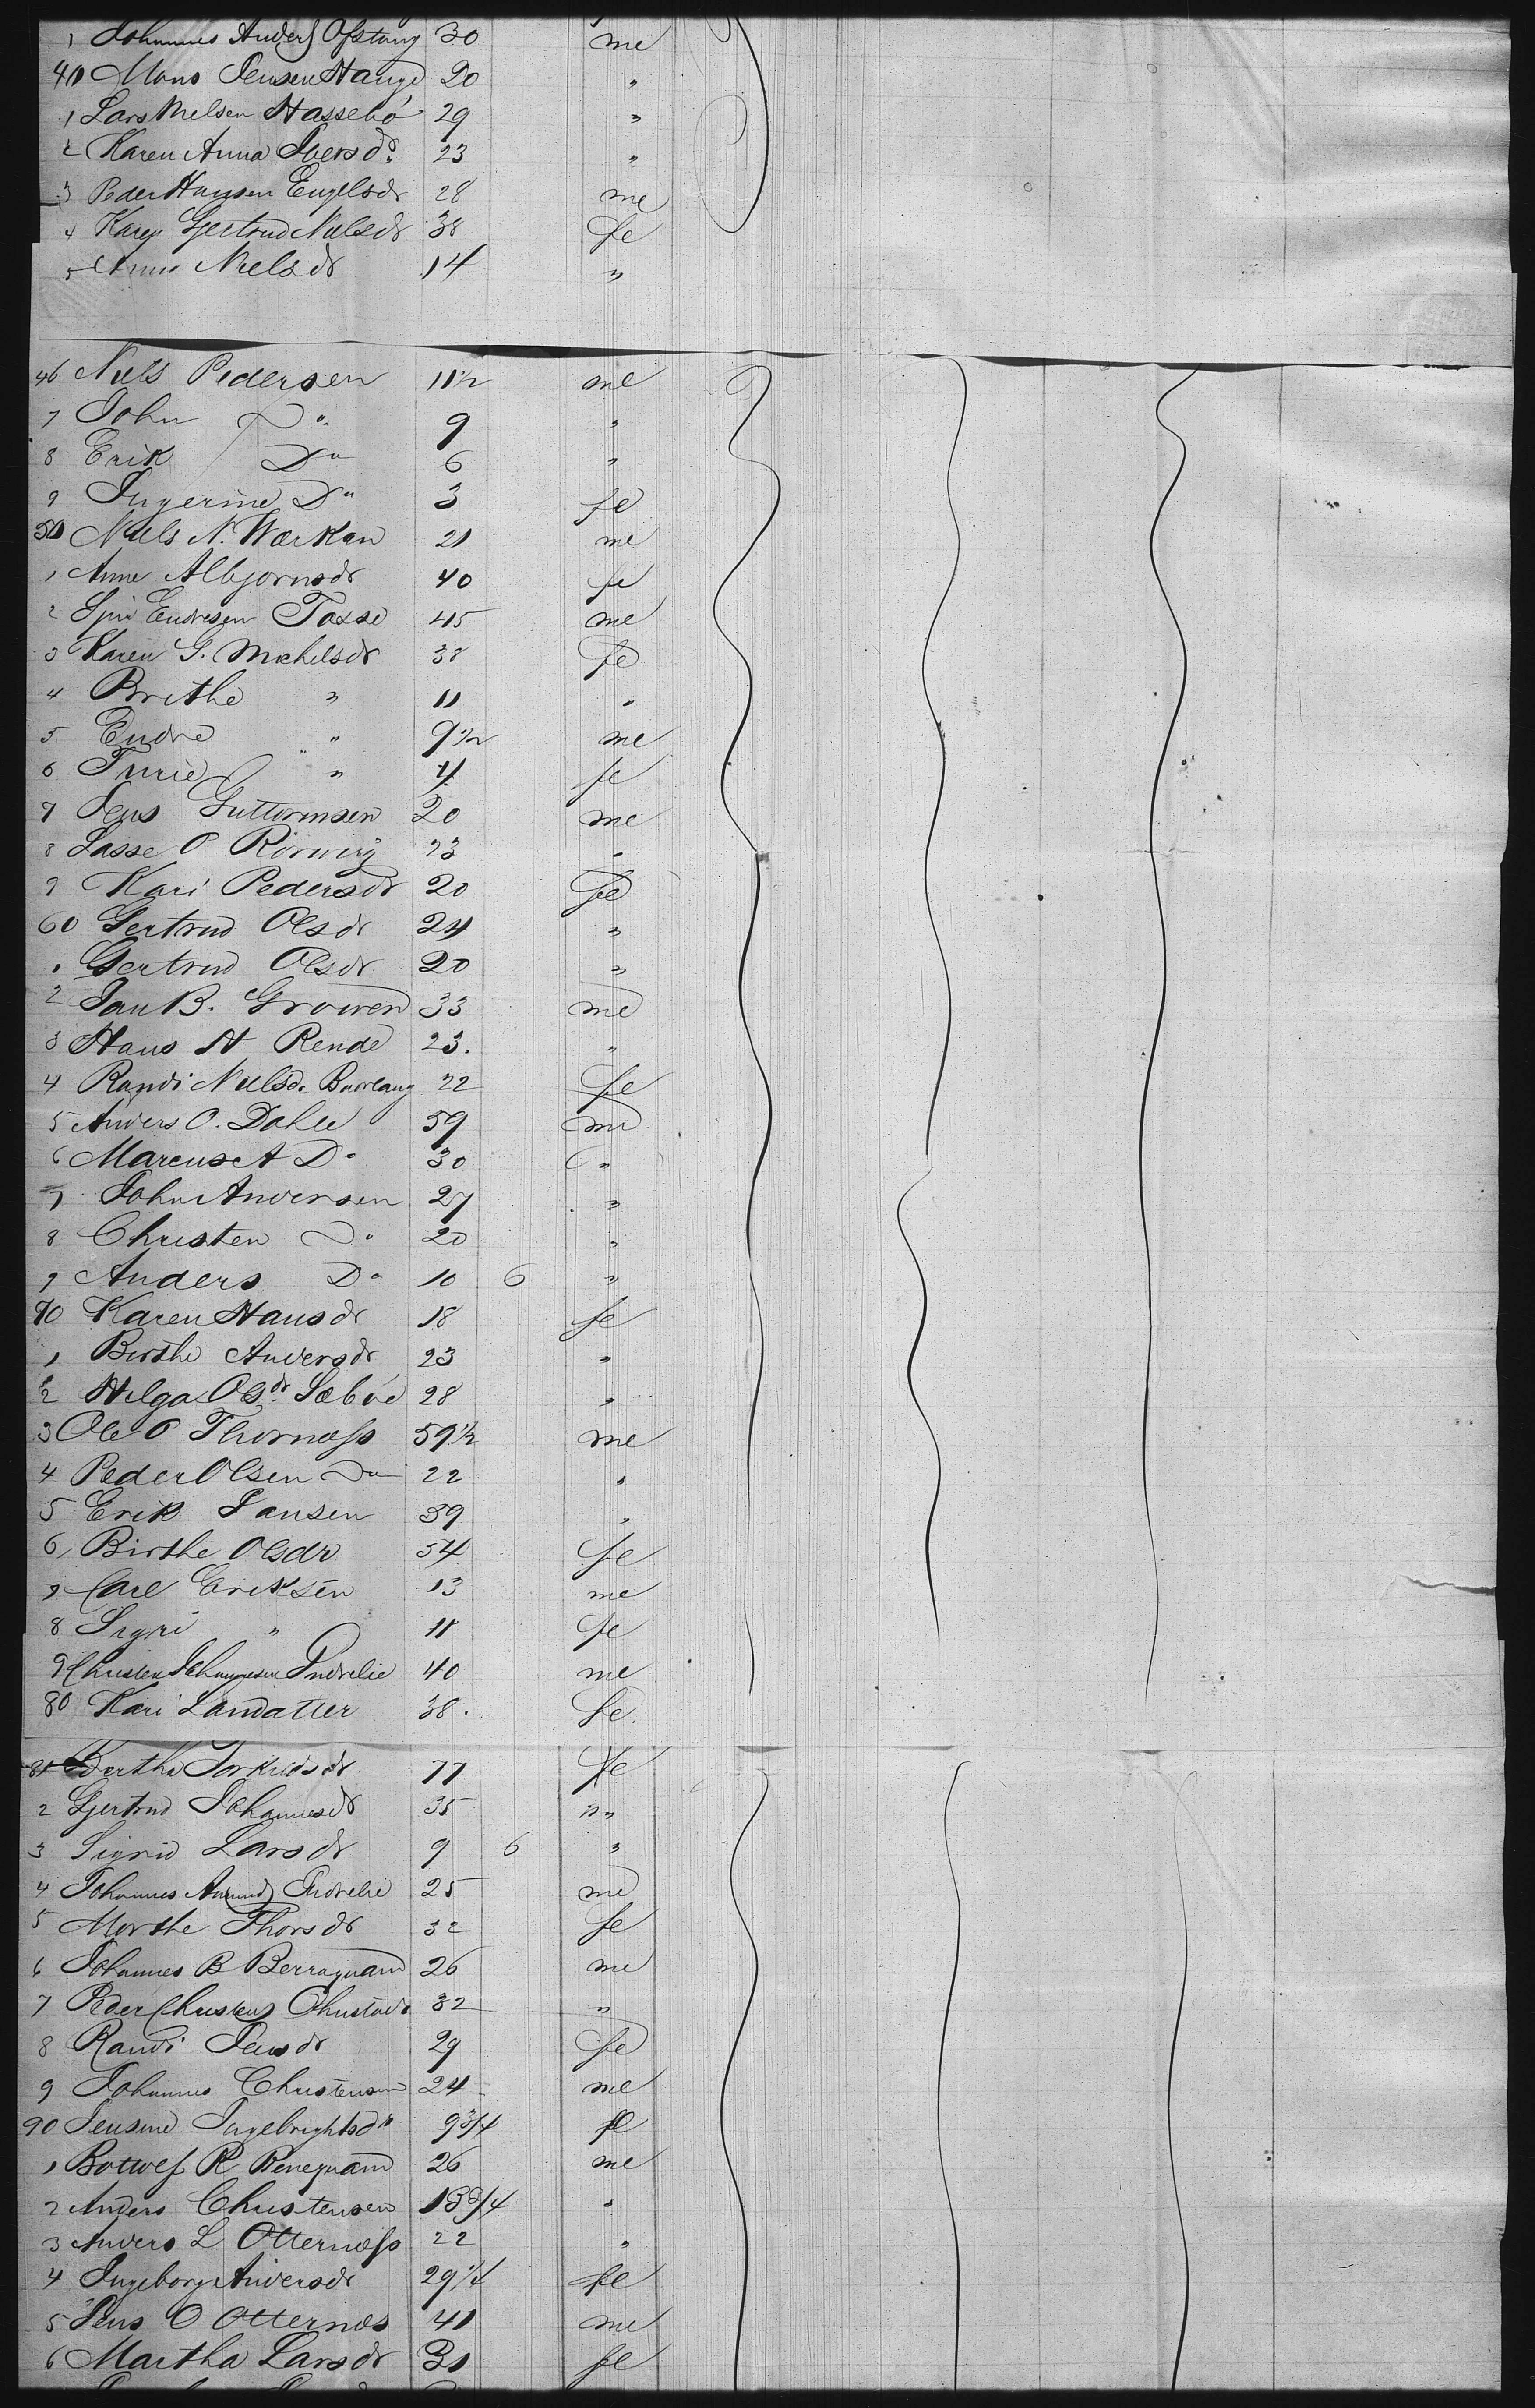 1 Johannes Anders Ofstang 30 me
40 Mons Jensen Hauge 20 "
1 Lars Nielsen Hassebö 29 "
2 Karen Anna Iversdr 23 "
3 Peder Hansen Engelsdr 28 me
4 Karen Gjertrud Nielsdr 38 fe
5 Anne Nielsdr 14 "
46 Niels Pedersen 11 1/2 me
7 John Do 9 "
8 Erik Do 6 "
9 Ingerine Do 3 fe
50 Niels N. Wærken 21 me
1 Anne Albjornsdr 40 fe
2 Endresen Tosse 45 me
3 Karen G. Michelsdr 38 fe
4 Brithe " 11 "
5 Endre " 9 1/2 me
6 Turie " 4 fe
7 Jens Guttormsen 20 me
8 Lasse O 23 "
9 Kari Pedersdr 20 fe
60 Gertrud Olsdr 24 "
1 Gertrud Olsdr 20 "
2 Jan B. Growen 33 me
3 Hans H Rende 23. "
4 Randi Nielsdr 22 fe
5 Anders O. Dahle 59 me
6 Marcus A Do 30 "
7 John Andersen 27 "
8 Christen Do 20 "
9 Anders Do 10 6 "
70 Karen Hansdr 18 fe
1 Birthe Andersdr 23 "
2 Helga Olsdr Sæböe 28 "
3 Ole O Thornæss 59 1/2 me
4 Peder Olsen Do 22 "
5 Erik Jansen 39 "
6 Birthe Olsdr 34 fe
7 Carl Eriksen 13 me
8 Sigri " 11 fe
9 Christen Johannesen Indrelie 40 me
80 Kari Landatter 38. fe.
81 Bertha Torkildsdr 77 fe
2 Gjertrud Johannesdr 35 " "
3 Sigrid Larsdr 9 6 "
4 Johannes Amund Indrelie 25 me
5 Marthe Thorsdr 32 fe
6 Johannes B Berraquam 26 me
7 Peder Christens 32 "
8 Randi Jensdr 29 fe
9 Johannes Christensen 24 me
90 Jensine Ingebrightsdr 9 3/4 fe
1 Bottolf R Renequam 26 me
2 Anders Christensen 18 3/4 "
3 Anders L Otternæss 22 "
4 Ingeborg Andersdr 29 1/4 fe
5 Jens O Otternæs 41 me
6 Martha Larsdr 31 fe